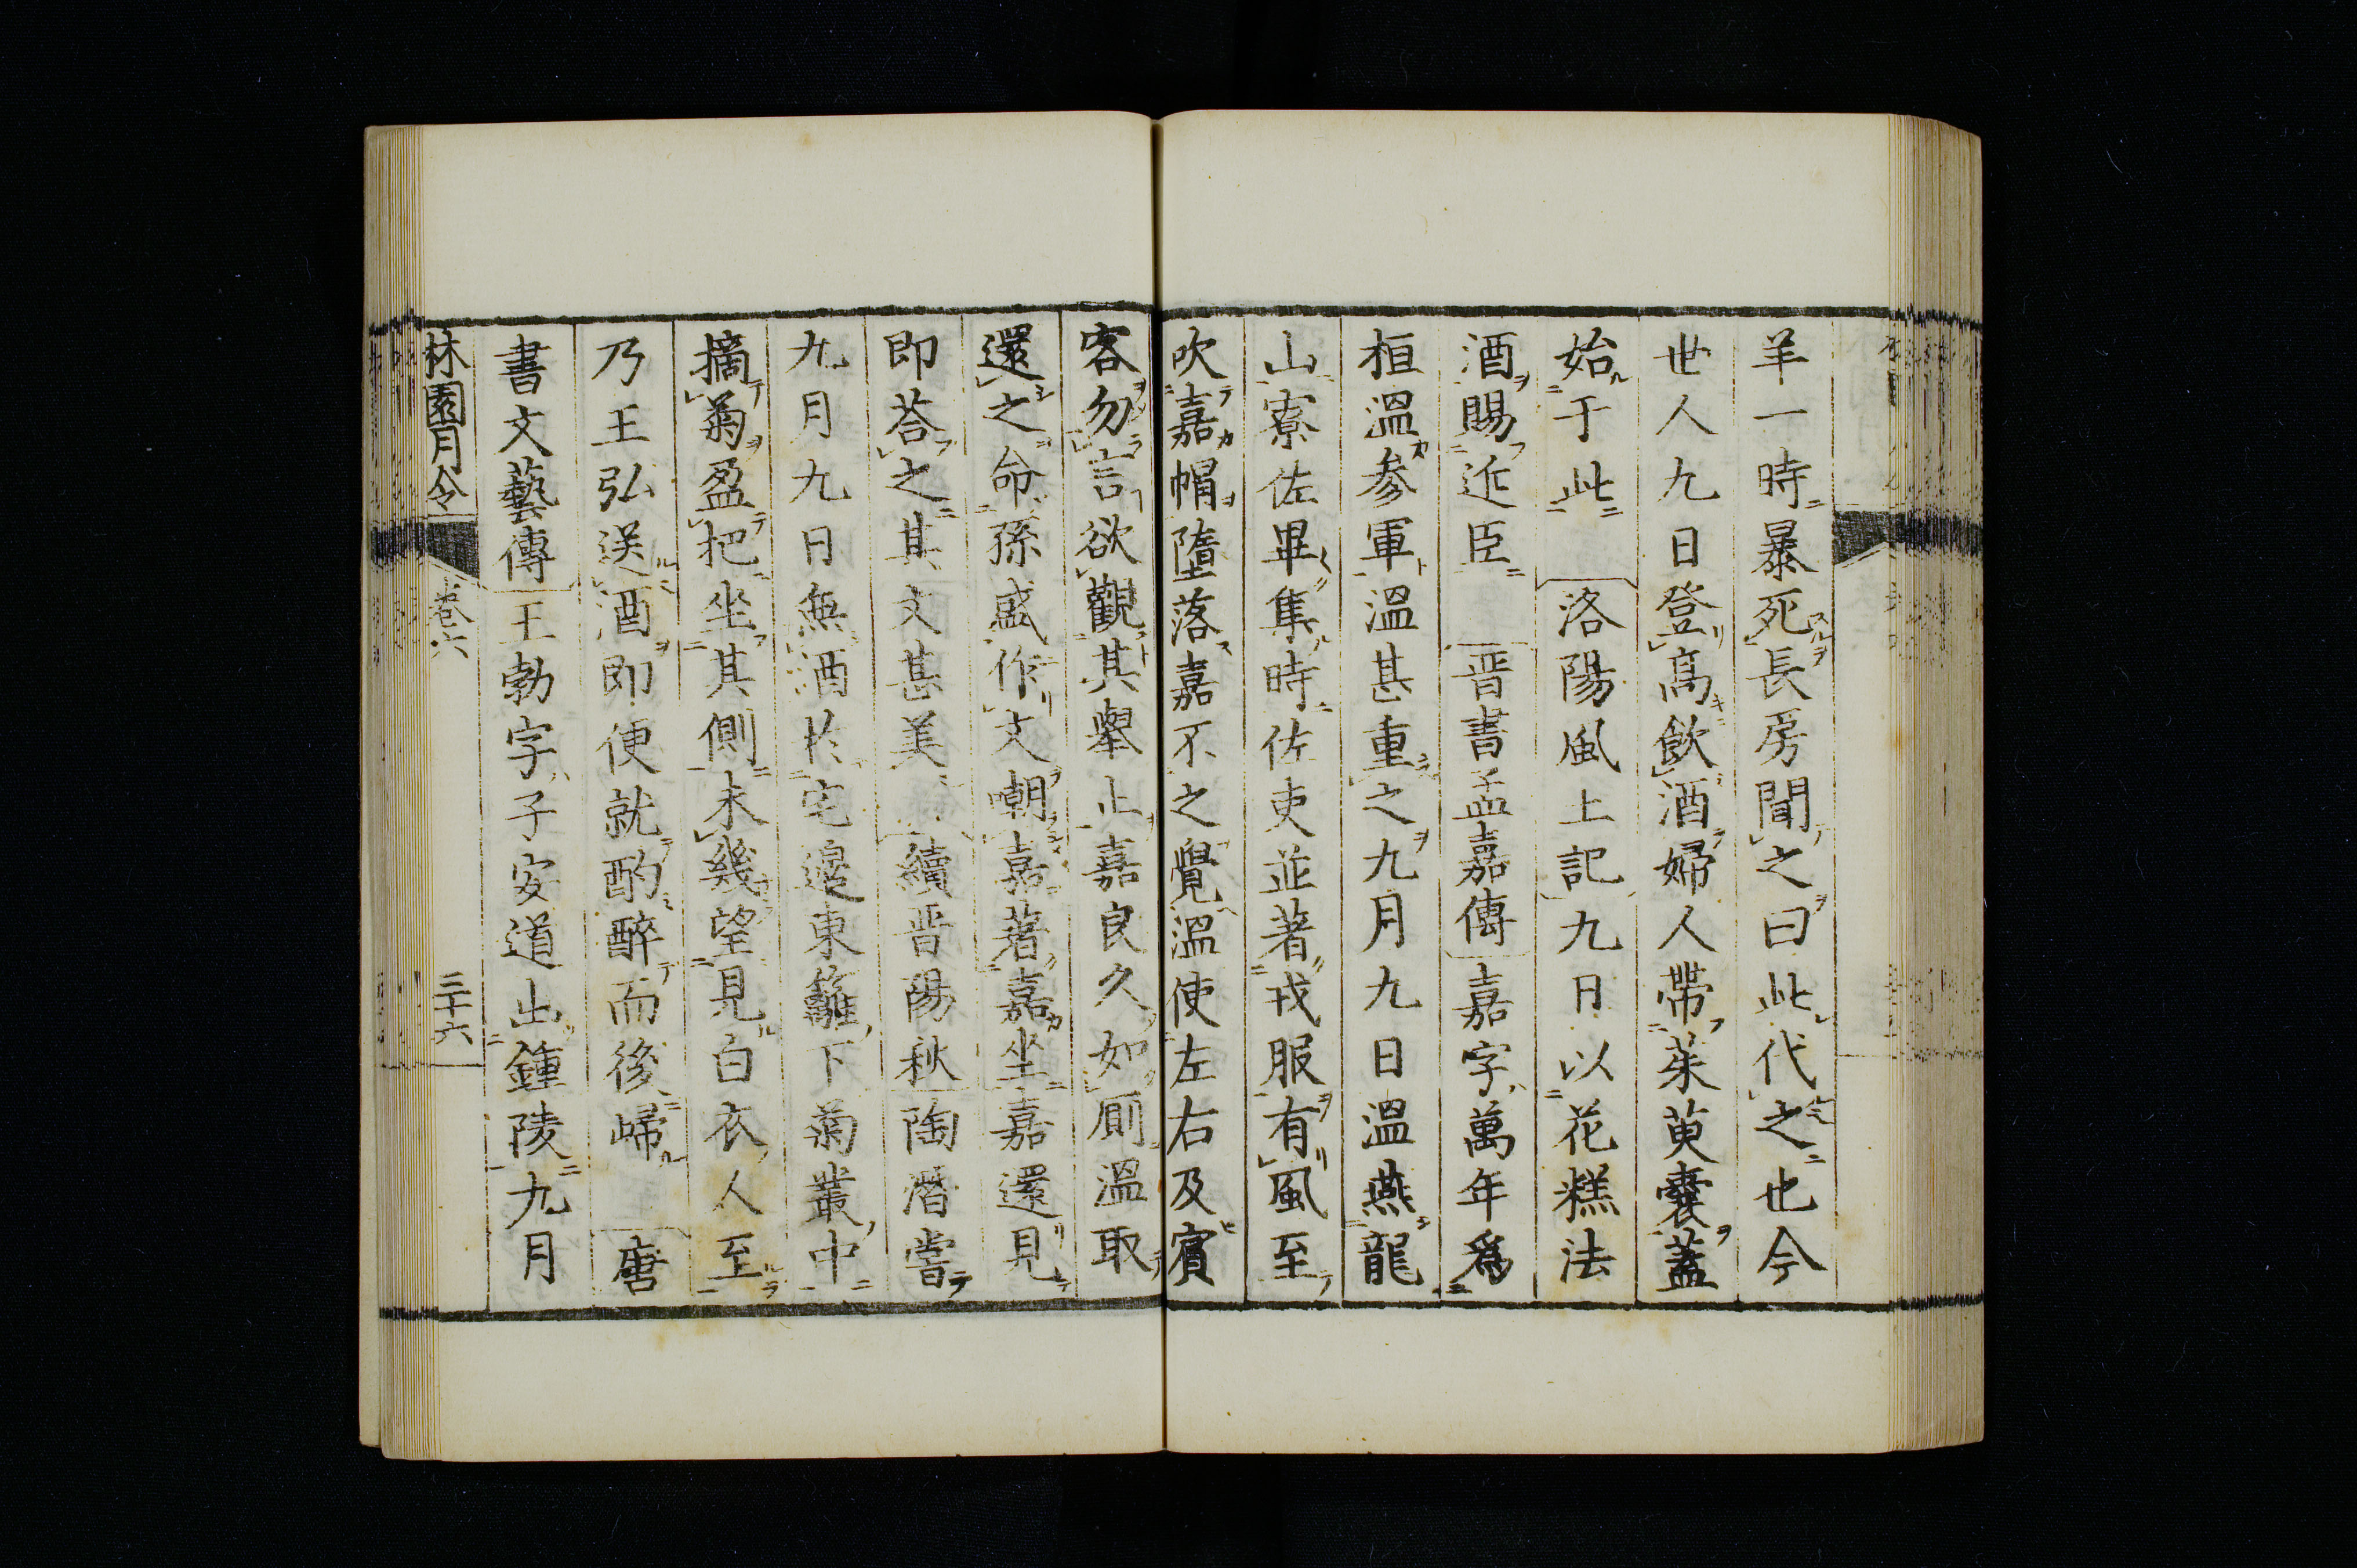 羊一時暴死長房聞之曰此代之也今
世人九日登高飲酒婦人帶茱萸囊蓋
始于此 洛陽風土記九日以花糕法
酒賜近臣 晋書孟嘉傳嘉字萬年爲
桓溫參軍溫甚重之九月九日溫燕龍
山寮佐畢集時佐吏並著戎服有風至
吹嘉帽墮落嘉不之覺溫使左右及賓
客勿言欲觀其舉止嘉良久如厠溫取
還之命孫盛作文嘲嘉著嘉坐嘉還見
即荅之其文甚美 續晋陽秋陶潛嘗
九月九日無酒於宅邊東籬下菊叢中
摘菊盈把坐其側未幾望見白衣人至
乃王弘送酒即便就酌醉而後歸 唐
書文藝傳王勃字子安道出鍾陵九月
林園月令 卷六 三十六